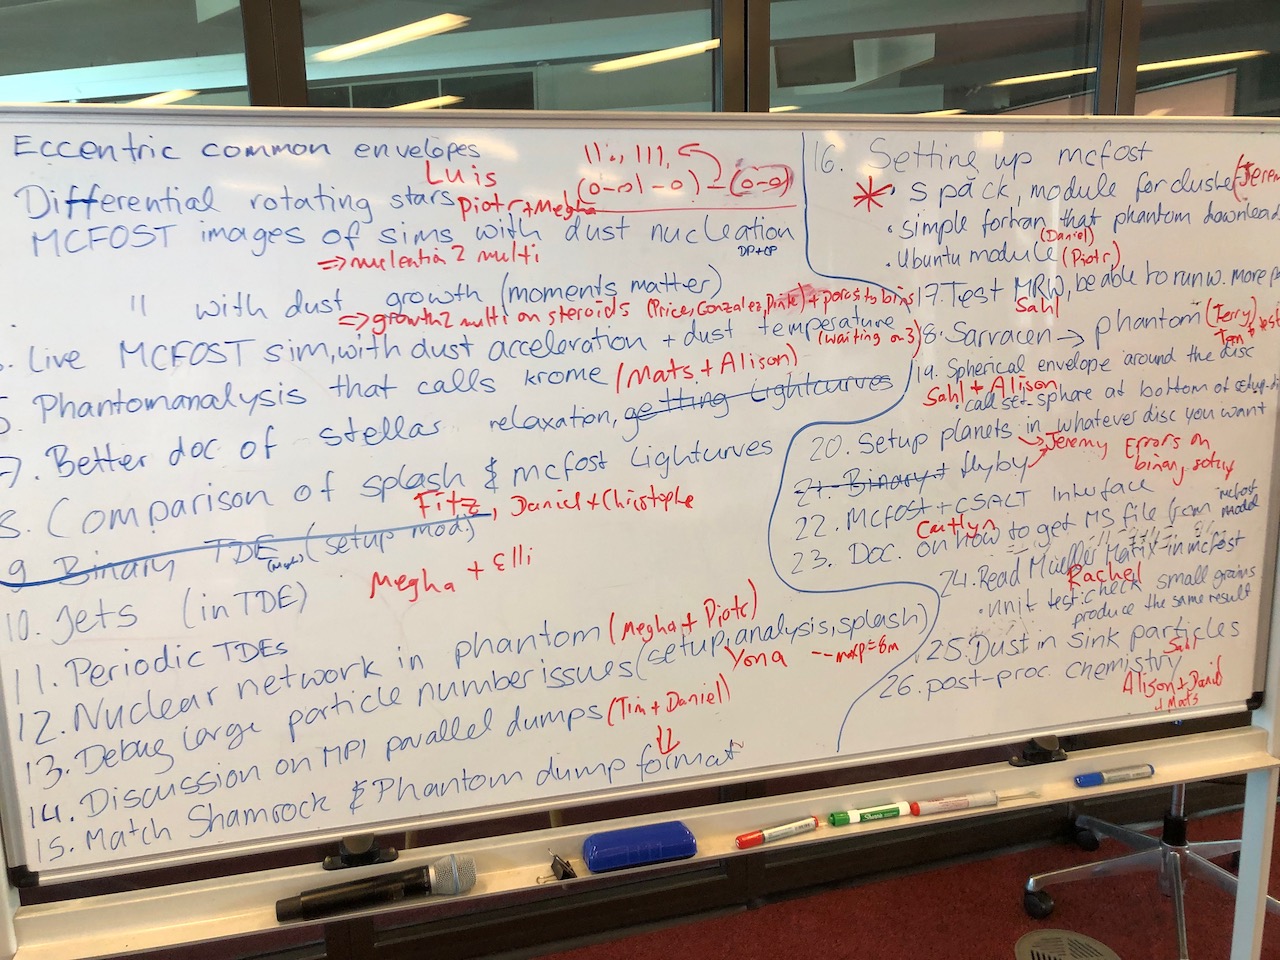 Eccentric common envelopes
Luis
11., 111,
(0-0)-0)-(0-0)
Differential rotating stars Piotr+Megha
MCFOST images of sims with dust nucleation
=> nucleation 2 multi
DP+CP
" with dust growth (moments matter)
=> growth2multi on steroids (Price, Gonzalez, Pinte) + porosity bins
Live MCFOST sim, with dust acceleration + dust temperature
(waiting on 3)
Phantomanalysis that calls krome (Mats + Alison)
7. Better doc of stellar relaxation, getting Lightcurves
8. Comparison of splash & mcfost Lightcurves
Fitz, Daniel+Christophe
9 Binary TDE (setup mod)
Megha + Elli
10. Jets (in TDE)
11. Periodic TDEs
12. Nuclear network in phantom (Megha + Piotr)
13. Debug large particle number issues (setup, analysis, splash)
Yona --maxp=8m
14. Discussion on MPI parallel dumps (Tim + Daniel)
15. Match Shamrock & Phantom dump format
16. Setting up mcfost
* · spack, module for cluster (Jerem
· simple fortran that phantom download
(Daniel)
· Ubuntu module (Piotr)
17. Test MRW, be able to run w. more p
Sahl
18. Sarracen → phantom (Terry)
19. Spherical envelope around the disc
Sahl + Alison
· call set-sphere at bottom of setup-di
20. Setup planets in whatever disc you want
→ Jeremy Errors on
binary setup
21. Binary + flyby
22. Mcfost + CSALT Interface
Caitlyn
23. Doc. on how to get MS file from mcfost model
24. Read Mueller Matrix in mcfost
Rachel
· unit test: check small grains
produce the same result
25. Dust in sink particles
Sahl
26. post-proc. chemistry
Alison + David
+ Mats